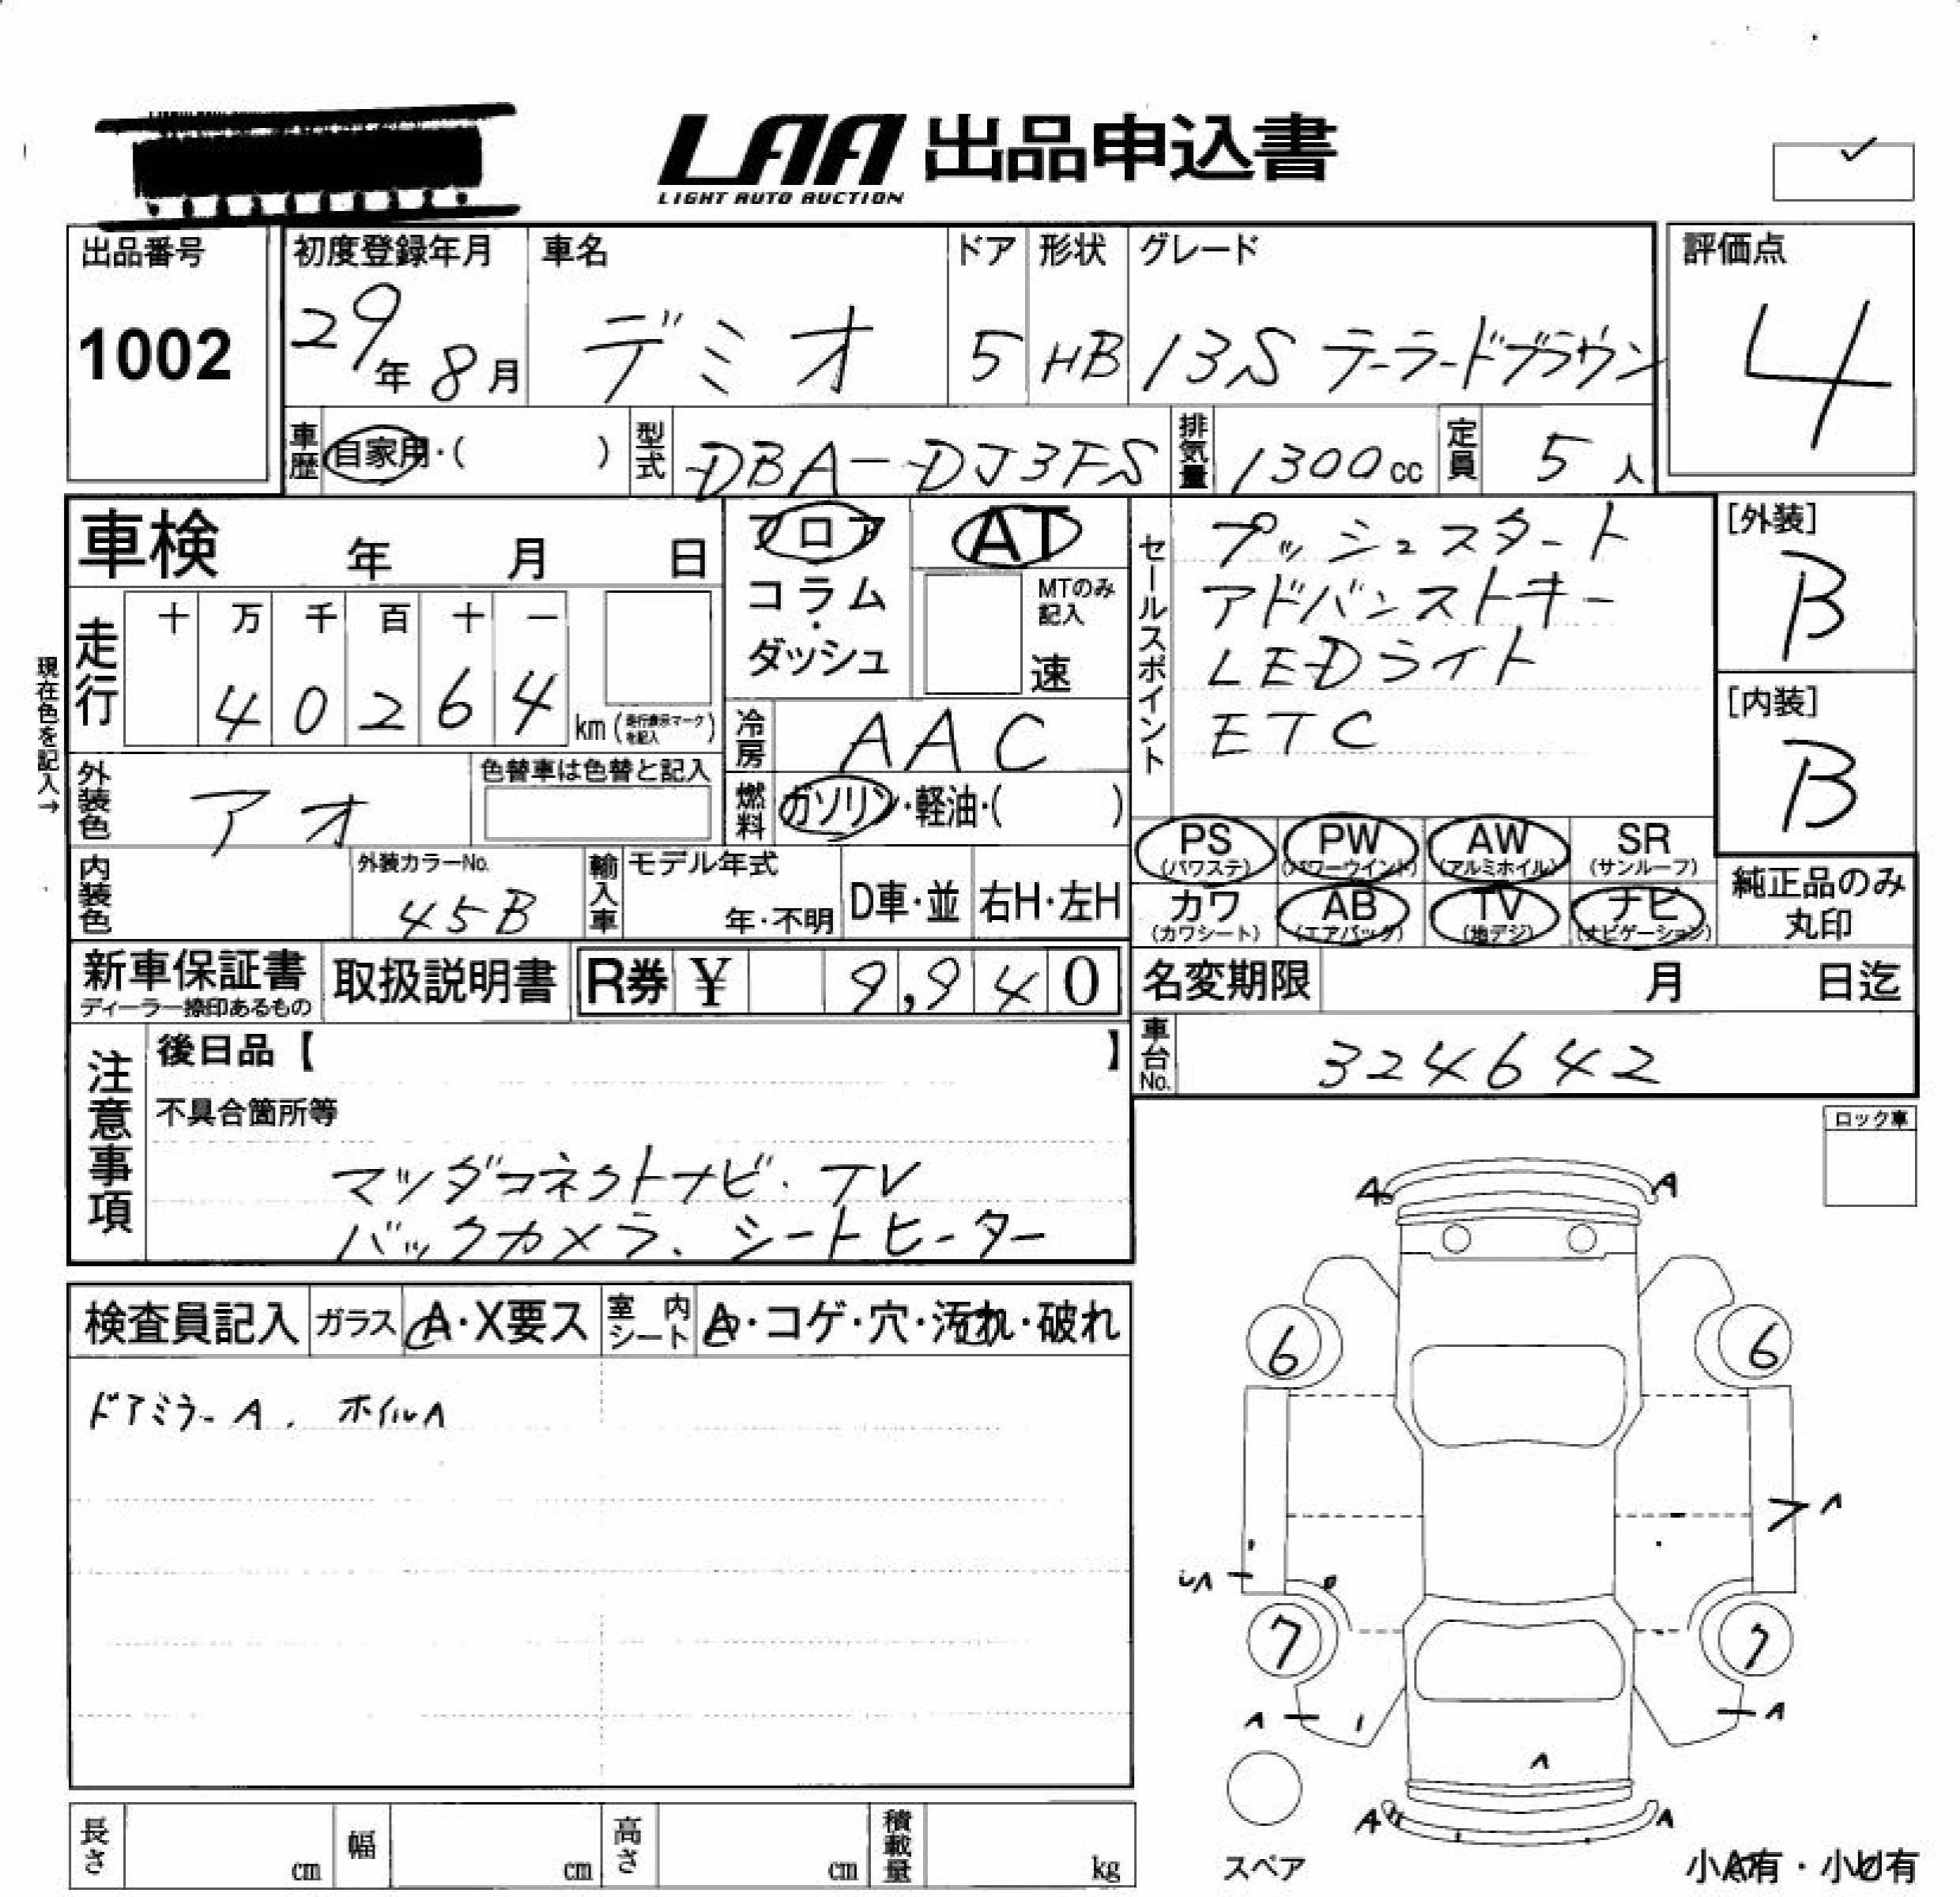 LAA 出品申込書
LIGHT AUTO AUCTION
出品番号
1002
初度登録年月
29年8月
車名
デミオ
ドア
5
形状
HB
グレード
13S テーラードブラウン
評価点
4
車歴
自家用・( )
型式
DBA-DJ3FS
排気量
1300cc
定員
5人
車検 年 月 日
フロア
コラム
・
ダッシュ
AT
MTのみ
記入
速
セールスポイント
プッシュスタート
アドバンストキー
LEDライト
ETC
[外装]
B
[内装]
B
現在色を記入→
走行
十 万 千 百 十 一
4 0 2 6 4
km(走行表示マークを記入)
冷房
AAC
外装色
アオ
色替車は色替と記入
燃料
ガソリン・軽油・( )
PS
(パワステ)
PW
(パワーウインド)
AW
(アルミホイル)
SR
(サンルーフ)
カワ
(カワシート)
AB
(エアバック)
TV
(地デジ)
ナビ
(ナビゲーション)
純正品のみ
丸印
内装色
外装カラーNo.
45B
輸入車
モデル年式
年・不明
D車・並
右H・左H
新車保証書
取扱説明書
R券 ¥ 9,940
名変期限 月 日迄
車台No.
324642
注意事項
後日品【 】
不具合箇所等
マツダコネクトナビ.TV
バックカメラ、シートヒーター
ロック車
検査員記入
ガラス
A・X要ス
室内
シート
A・コゲ・穴・汚れ・破れ
ドアミラーA. ホイルA
A A
6 6
A
A
7 7
A A
A
A A
スペア
小A有・小U有
長さ cm
幅 cm
高さ cm
積載量 kg